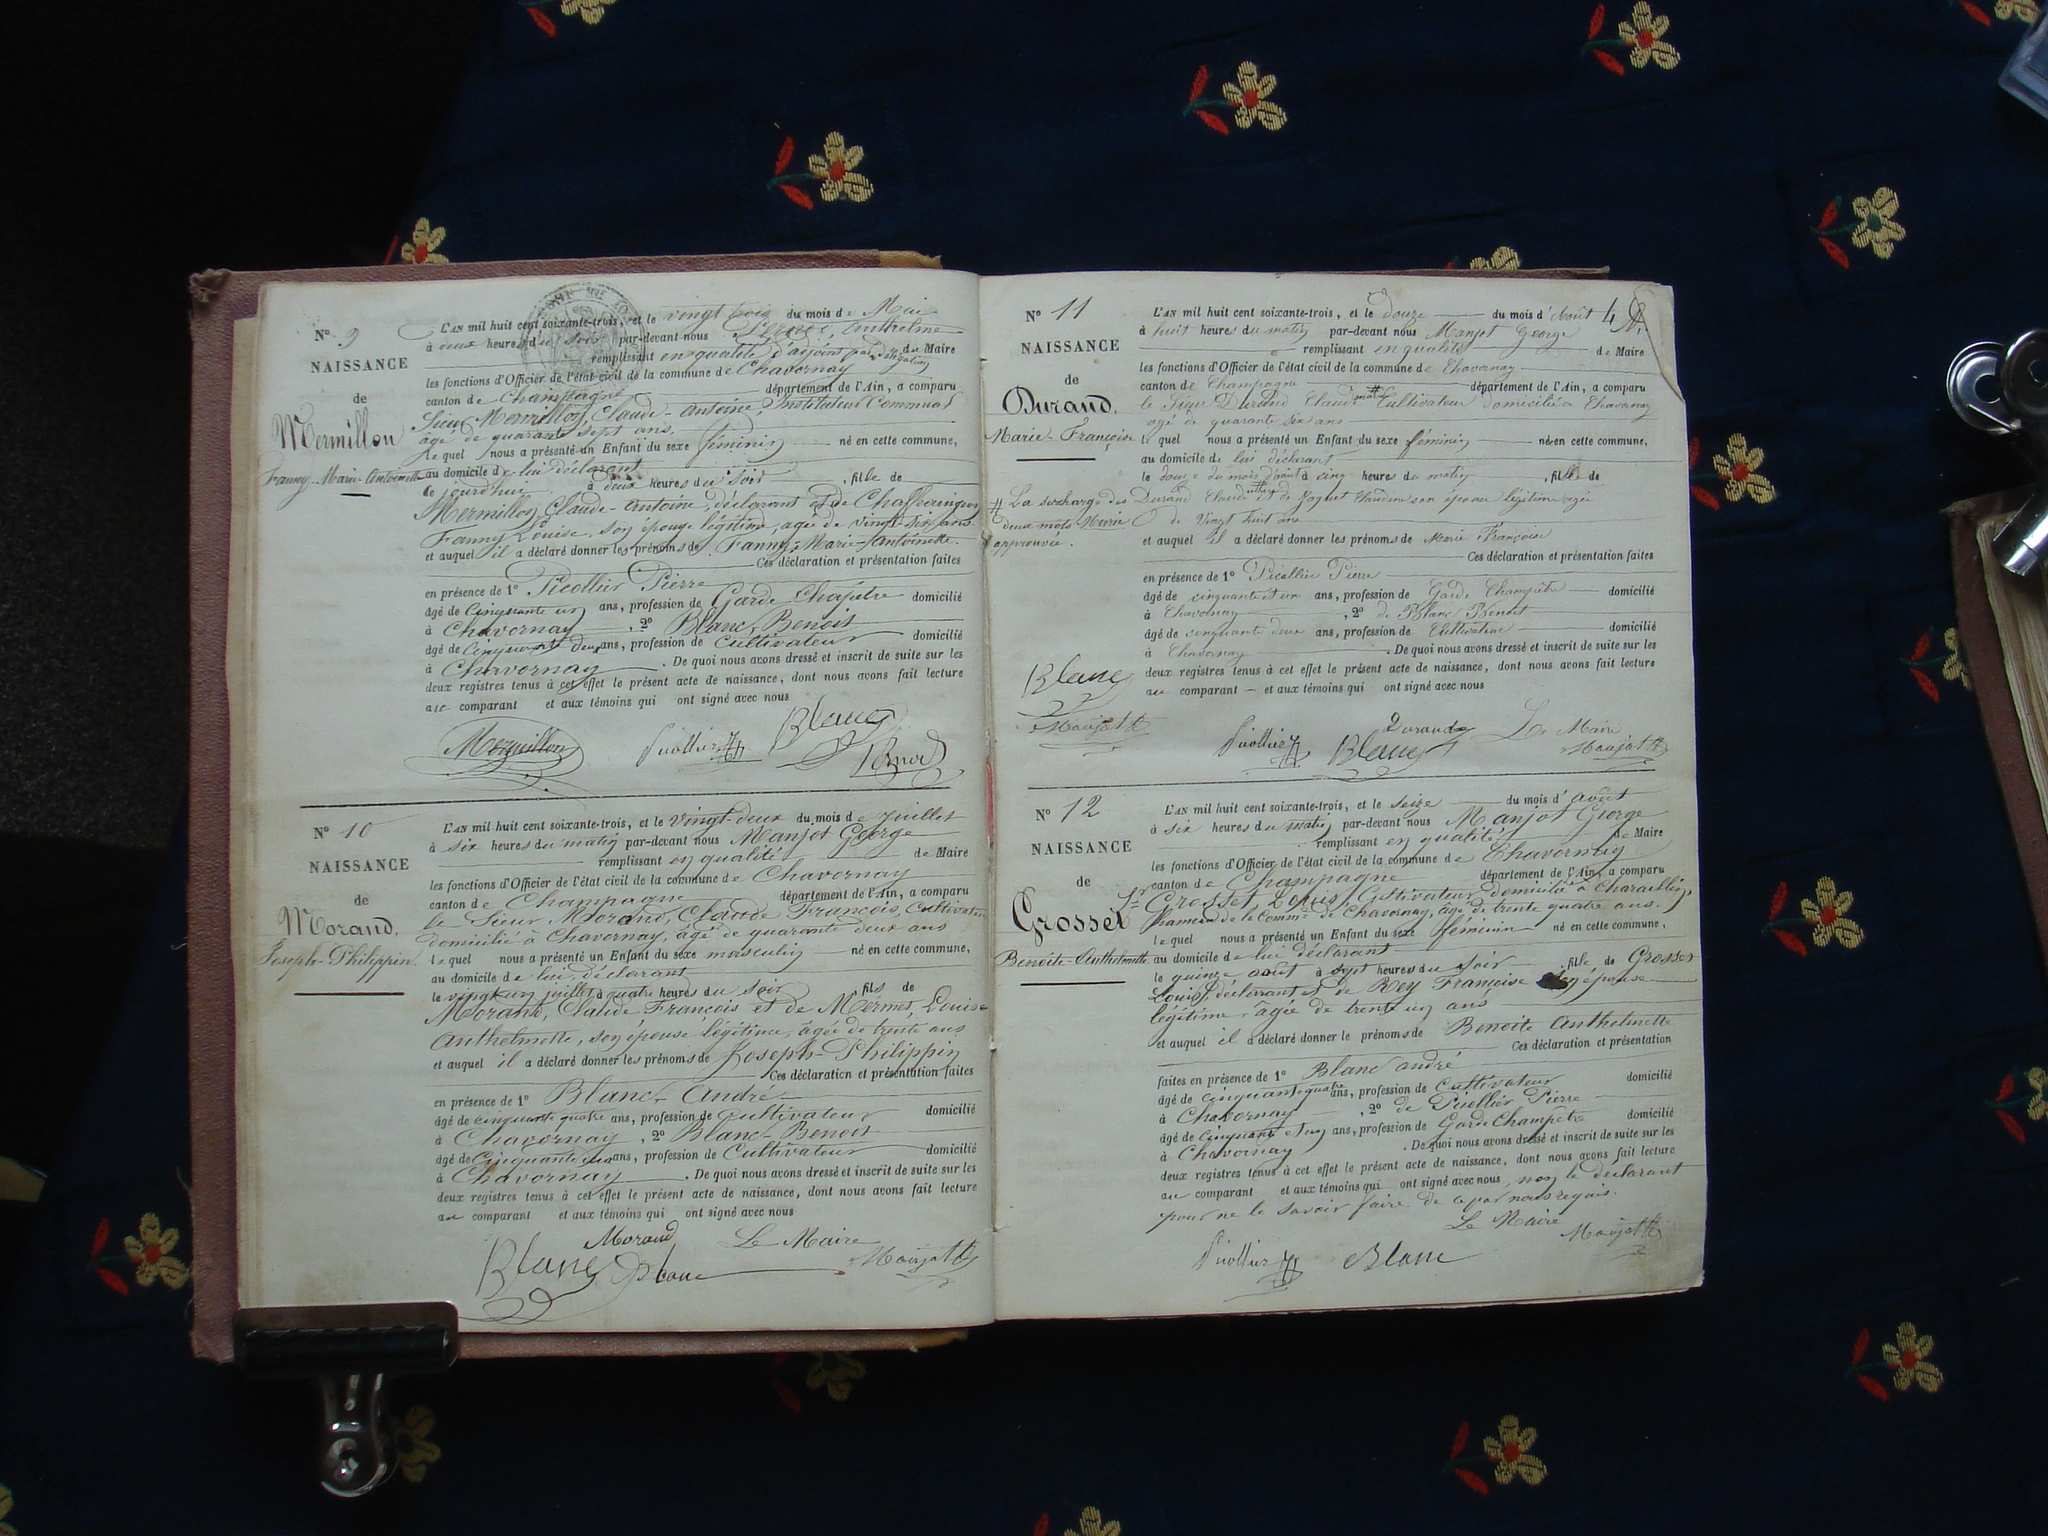 N° 9
NAISSANCE
de
Mermillon
Fanny-Marie-Antoinette
L'AN mil huit cent soixante-trois, et le vingt trois du mois de Mai
à deux heures du soir par-devant nous Anthelme
remplissant en qualité d'adjoint par délégation du Maire
les fonctions d'Officier de l'état civil de la commune de Chavornay
canton de Champagne département de l'Ain, a comparu
Sieur Mermillon, Claude-Antoine, Instituteur Communal
âgé de quarante sept ans,
Le quel nous a présenté un Enfant du sexe féminin né en cette commune,
au domicile de lui déclarant
à deux heures du soir , fille de
Mermillon, Claude-Antoine, déclarant et de
Fanny Louise, son épouse légitime, âgée de vingt-six ans
et auquel il a déclaré donner les prénoms de Fanny-Marie-Antoinette.
Ces déclaration et présentation faites
en présence de 1° Picollier Pierre
âgé de Cinquante un ans, profession de Garde Champêtre domicilié
à Chavornay , 2° Blanc, Benoit
âgé de Cinquante deux ans, profession de Cultivateur domicilié
à Chavornay . De quoi nous avons dressé et inscrit de suite sur les
deux registres tenus à cet effet le présent acte de naissance, dont nous avons fait lecture
au comparant et aux témoins qui ont signé avec nous
Blanc
Mermillon Picollier
N° 10
NAISSANCE
de
Morand,
Joseph-Philippin
L'AN mil huit cent soixante-trois, et le vingt-deux du mois de juillet
à six heures du matin par-devant nous Manjot George
remplissant en qualité de Maire
les fonctions d'Officier de l'état civil de la commune de Chavornay
canton de Champagne département de l'Ain, a comparu
le Sieur Morand, Claude François, Cultivateur
domicilié à Chavornay, âgé de quarante deux ans
le quel nous a présenté un Enfant du sexe masculin né en cette commune,
au domicile de lui, déclarant
le vingt un juillet à quatre heures du soir fils de
Morand, Claude François et de Mermet, Louise
Anthelmette, son épouse légitime, âgée de trente ans
et auquel il a déclaré donner les prénoms de Joseph-Philippin
Ces déclaration et présentation faites
en présence de 1° Blanc, André
âgé de cinquante quatre ans, profession de Cultivateur domicilié
à Chavornay , 2° Blanc-Benoit
âgé de Cinquante deux ans, profession de Cultivateur domicilié
à Chavornay . De quoi nous avons dressé et inscrit de suite sur les
deux registres tenus à cet effet le présent acte de naissance, dont nous avons fait lecture
au comparant et aux témoins qui ont signé avec nous
Morand Le Maire
Blanc Blanc Manjot
N° 11
NAISSANCE
de
Durand,
Marie-Françoise
# La surcharge des
deux mots Marie
approuvée.
L'AN mil huit cent soixante-trois, et le douze du mois d'Août
à huit heures du matin par-devant nous Manjot George
remplissant en qualité de Maire
les fonctions d'Officier de l'état civil de la commune de Chavornay
canton de Champagne département de l'Ain, a comparu
le Sieur Durand Claude Cultivateur domicilié à Chavornay
âgé de quarante six ans
le quel nous a présenté un Enfant du sexe féminin né en cette commune,
au domicile de lui déclarant
le douze du mois d'août à cinq heures du matin , fille de
Durand Claude et de Joguet Claudine son épouse légitime âgée
de vingt huit ans
et auquel il a déclaré donner les prénoms de Marie Françoise
Ces déclaration et présentation faites
en présence de 1° Picollier Pierre
âgé de cinquante et un ans, profession de Garde Champêtre domicilié
à Chavornay , 2° de Blanc Benoit
âgé de cinquante deux ans, profession de Cultivateur domicilié
à Chavornay . De quoi nous avons dressé et inscrit de suite sur les
deux registres tenus à cet effet le présent acte de naissance, dont nous avons fait lecture
au comparant et aux témoins qui ont signé avec nous
Blanc
Manjot
Durand Le Maire
Picollier Blanc Manjot
N° 12
NAISSANCE
de
Grosset
Benoite-Anthelmette
L'AN mil huit cent soixante-trois, et le seize du mois d'août
à six heures du matin par-devant nous Manjot George
remplissant en qualité de Maire
les fonctions d'Officier de l'état civil de la commune de Chavornay
canton de Champagne département de l'Ain, a comparu
Sr Grosset, Louis, Cultivateur, domicilié à Charaillin,
hameau de la Comm. de Chavornay, âgé de trente quatre ans.
le quel nous a présenté un Enfant du sexe féminin né en cette commune,
au domicile de lui déclarant
le quinze août à sept heures du soir fille de Grosset
Louis, déclarant et de Rey Françoise son épouse
légitime, âgée de trente un ans
et auquel il a déclaré donner les prénoms de Benoite Anthelmette
Ces déclaration et présentation
faites en présence de 1° Blanc André
âgé de cinquante quatre ans, profession de Cultivateur domicilié
à Chavornay , 2° de Picollier Pierre
âgé de cinquante et un ans, profession de Garde Champêtre domicilié
à Chavornay . De quoi nous avons dressé et inscrit de suite sur les
deux registres tenus à cet effet le présent acte de naissance, dont nous avons fait lecture
au comparant et aux témoins qui ont signé avec nous, non le déclarant
pour ne le savoir faire de ce par nous requis.
Le Maire
Picollier Blanc Manjot